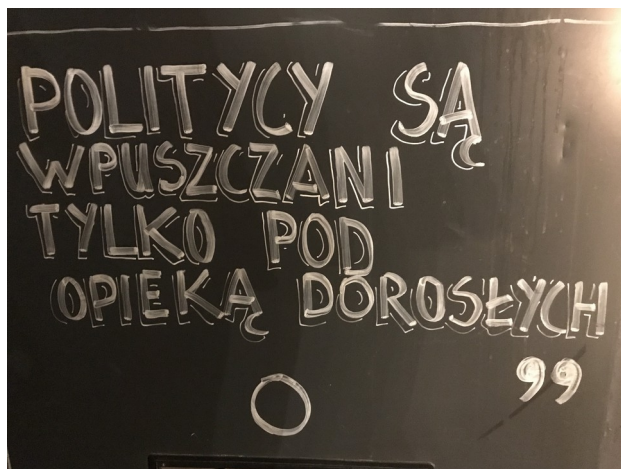 POLITYCY SĄ
WPUSZCZANI
TYLKO POD
OPIEKĄ DOROSŁYCH
”